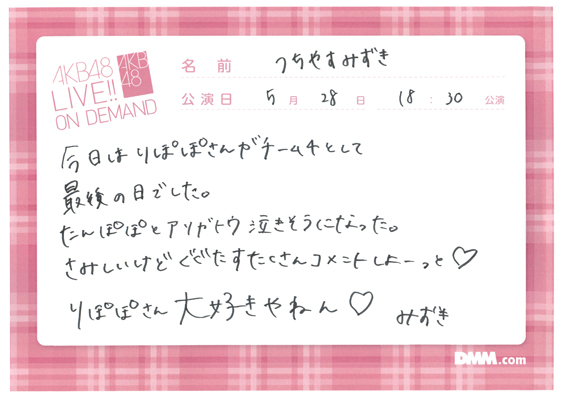 AKB48
LIVE!!
ON DEMAND
AKB
48
名 前 つちやすみずき
公演日 5 月 28 日 18 : 30 公演
今日はりぽぽさんがチーム4として
最後の日でした。
たんぽぽとアリガトウ 泣きそうになった。
さみしいけど ぐぐたすたくさんコメントしよーっと♡
りぽぽさん 大好きやねん♡ みずき
DMM.com